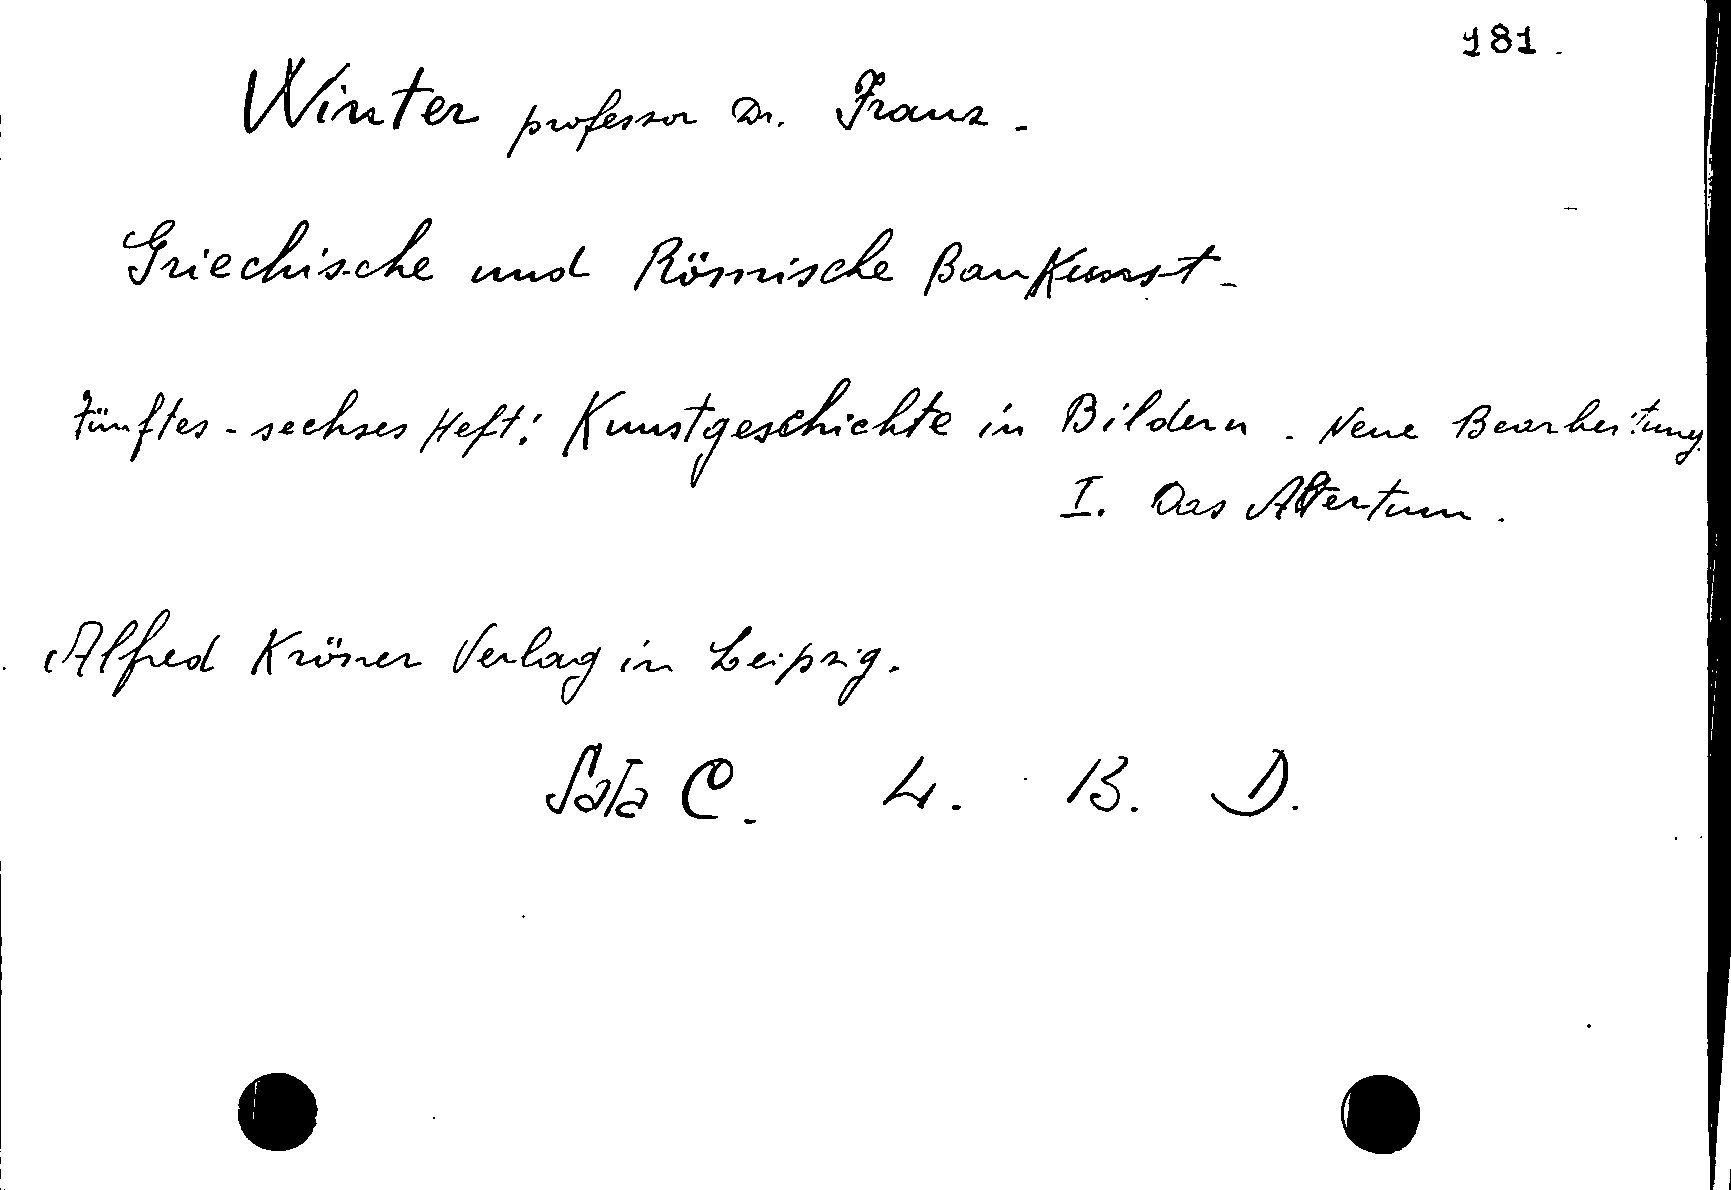 181.
Winter professor Dr. Franz.
Griechische und Römische BauKunst.
Fünftes - sechses Heft: Kunstgeschichte in Bildern. Neue Bearbeitung.
I. Das Altertum.
Alfred Kröner Verlag in Leipzig.
Sala C. 4. B. D.